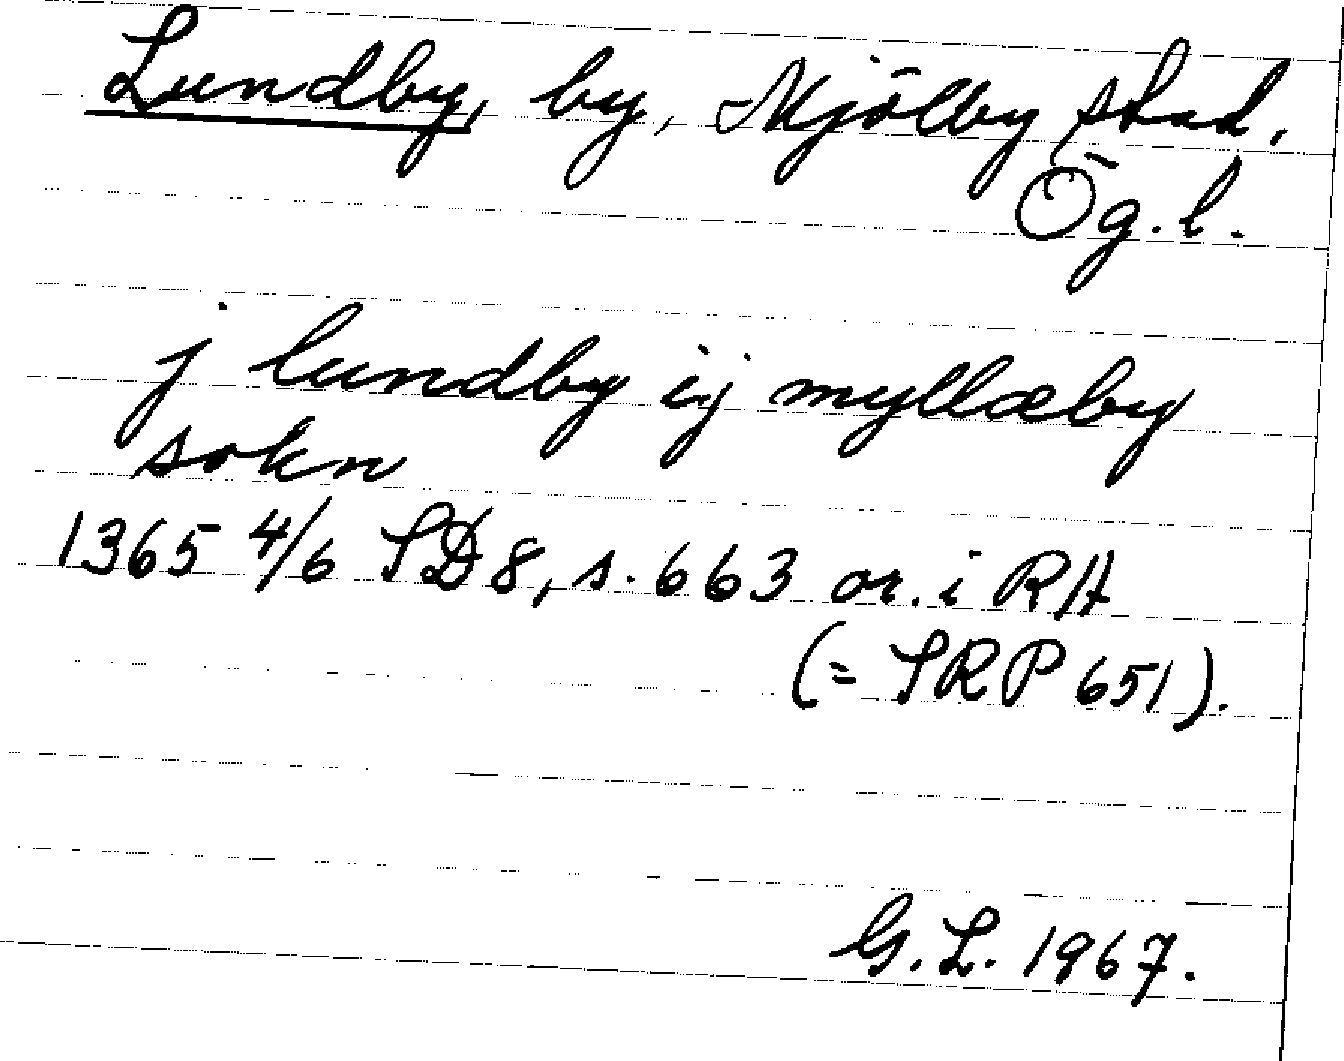 Lundby, by, Mjölby stad.
Ög. l.
j lundby ij myllæby
sokn
1365 4/6 SD 8, s. 663 or. i RA
(= SRP 651).
G. L. 1967.